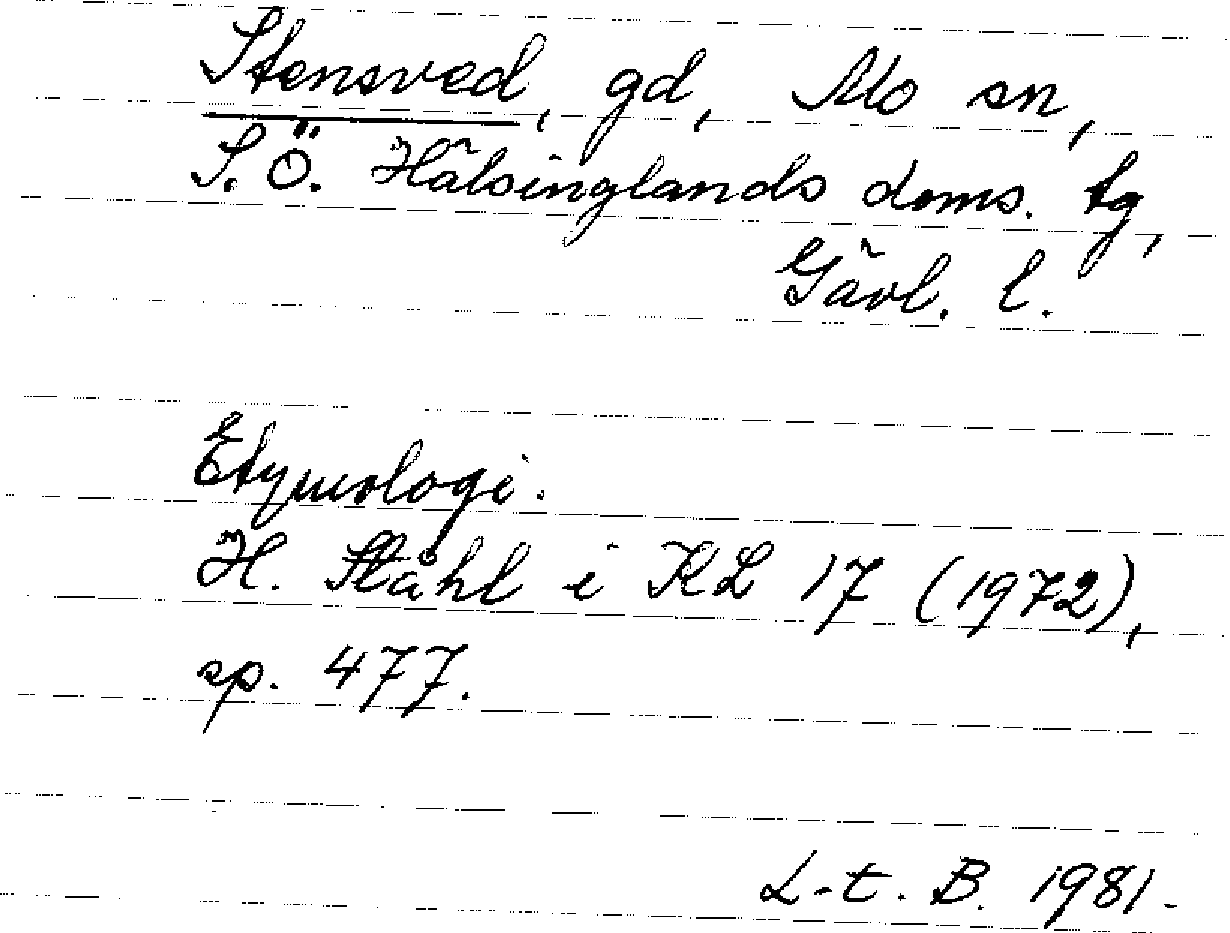 Stensved, gd, Mo sn,
S.Ö. Hälsinglands doms. tg,
Gävl. l.
Etymologi.
H. Ståhl i KL 17 (1972),
sp. 477.
L-t. B. 1981.